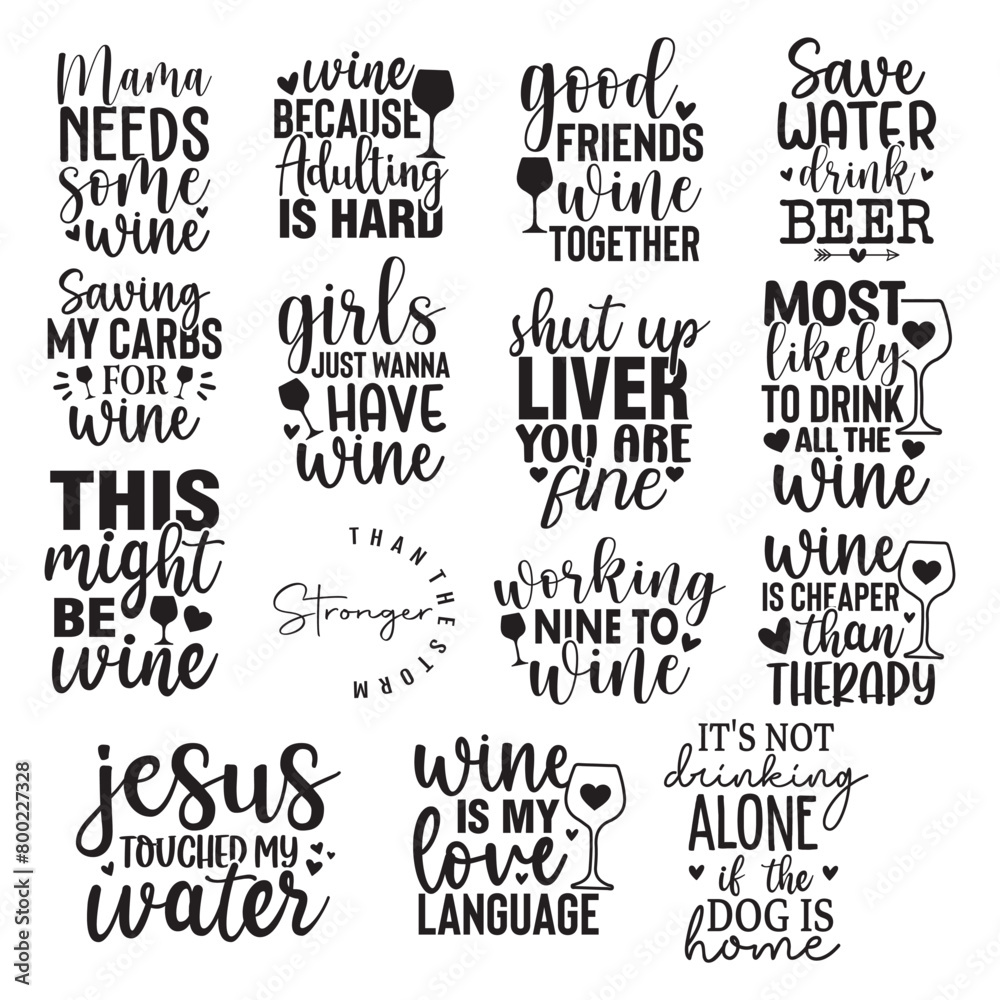 Mama
NEEDS
some
wine
wine
BECAUSE
Adulting
IS HARD
good
FRIENDS
wine
TOGETHER
Save
WATER
drink
BEER
Saving
MY CARBS
FOR
wine
girls
JUST WANNA
HAVE
wine
shut up
LIVER
YOU ARE
fine
MOST
likely
TO DRINK
ALL THE
wine
THIS
might
BE
wine
Stronger
THAN THE STORM
working
NINE TO
wine
wine
IS CHEAPER
than
THERAPY
jesus
TOUCHED MY
water
wine
IS MY
love
LANGUAGE
IT'S NOT
drinking
ALONE
if the
DOG IS
home
Adobe Stock | #800227328